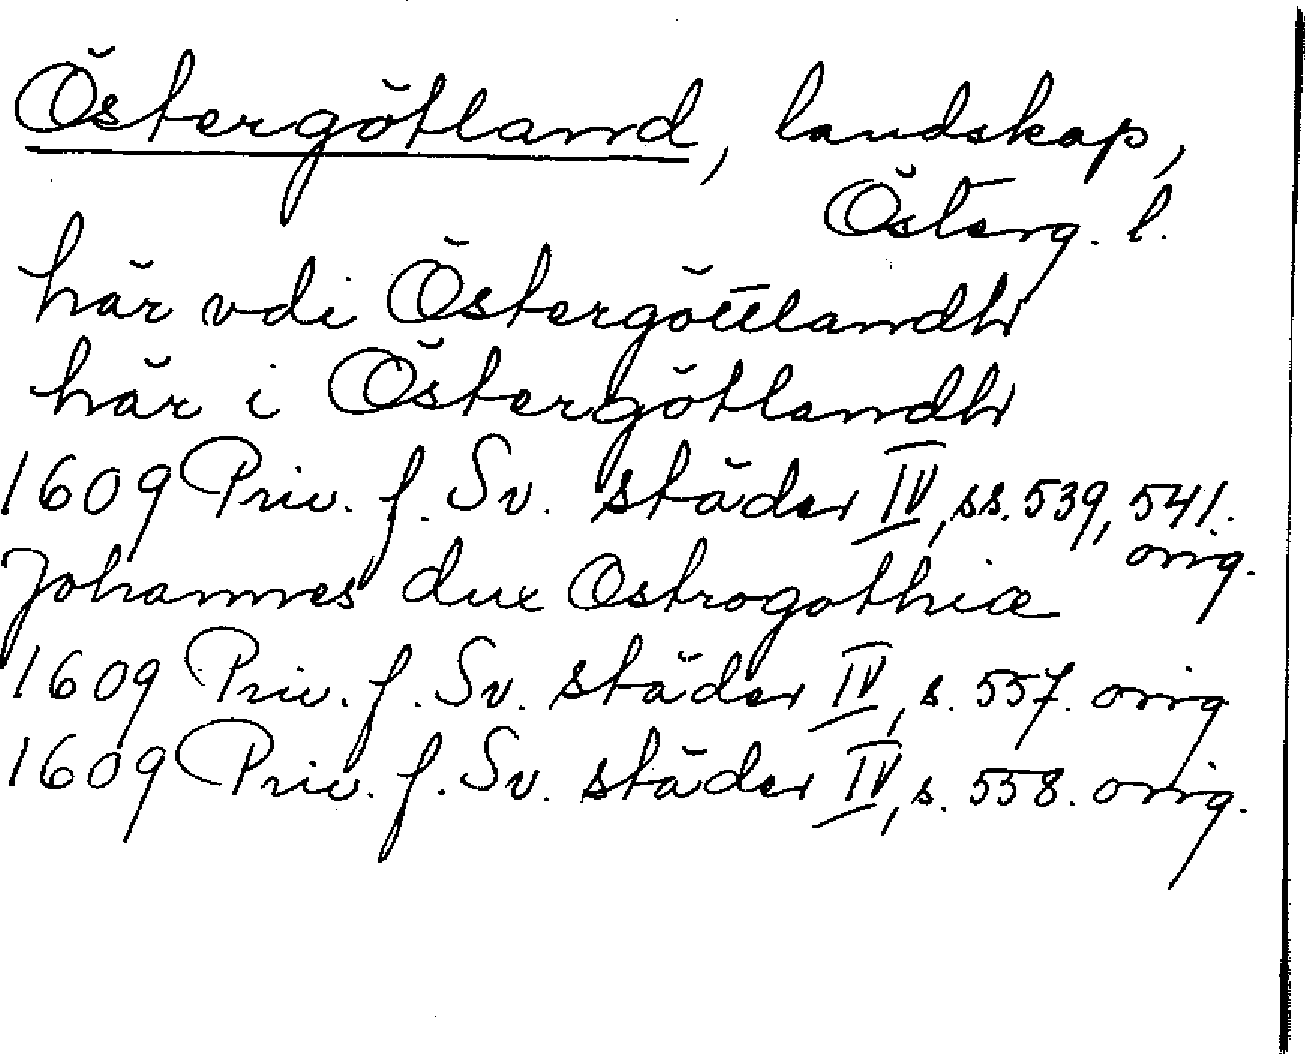 Östergötland, landskap,
Österg. l.
här vdi Östergöttlandh
här i Östergötlandh
1609 Priv. f. Sv. städer IV, ss. 539, 541.
orig.
Johannes dux Ostrogothiæ
1609 Priv. f. Sv. städer IV, s. 557. orig
1609 Priv. f. Sv. städer IV, s. 558. orig.